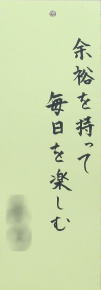 余裕を持って
毎日を楽しむ